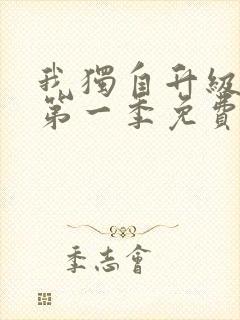 我獨自升級
第一季免費
季志會